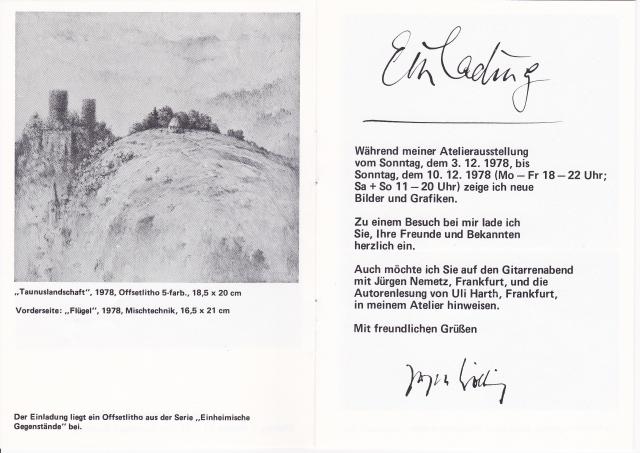 „Taunuslandschaft", 1978, Offsetlitho 5-farb., 18,5 x 20 cm
Vorderseite: „Flügel", 1978, Mischtechnik, 16,5 x 21 cm
Der Einladung liegt ein Offsetlitho aus der Serie „Einheimische
Gegenstände" bei.
Einladung
Während meiner Atelierausstellung
vom Sonntag, dem 3. 12. 1978, bis
Sonntag, dem 10. 12. 1978 (Mo – Fr 18 – 22 Uhr;
Sa + So 11 – 20 Uhr) zeige ich neue
Bilder und Grafiken.
Zu einem Besuch bei mir lade ich
Sie, Ihre Freunde und Bekannten
herzlich ein.
Auch möchte ich Sie auf den Gitarrenabend
mit Jürgen Nemetz, Frankfurt, und die
Autorenlesung von Uli Harth, Frankfurt,
in meinem Atelier hinweisen.
Mit freundlichen Grüßen